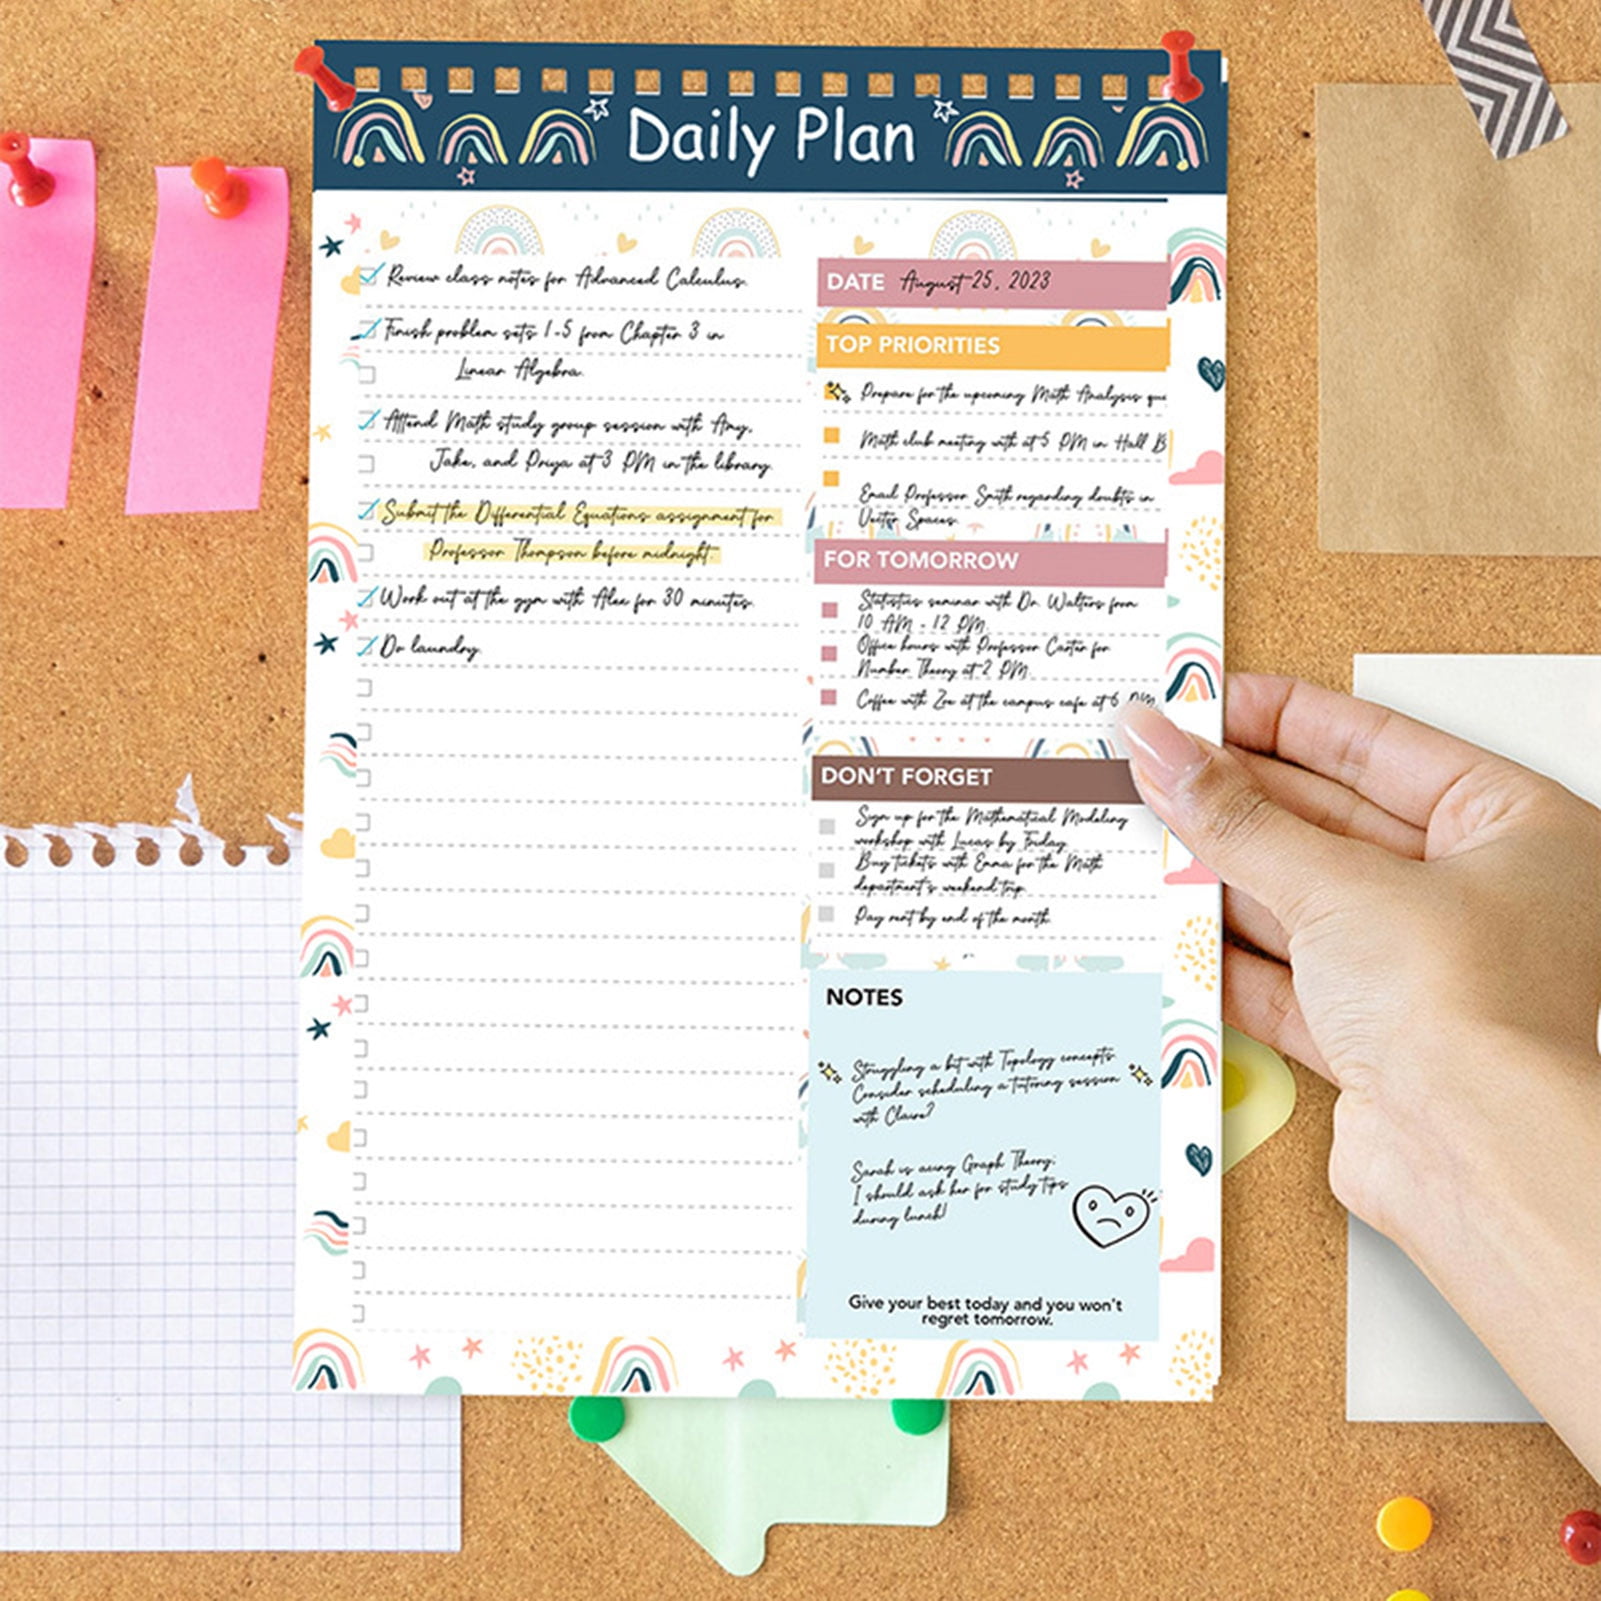 Daily Plan
Review class notes for Advanced Calculus.
Finish problem sets 1-5 from Chapter 3 in
Linear Algebra.
Attend Math study group session with Amy,
Jake, and Priya at 3 PM in the library.
Submit the Differential Equations assignment for
Professor Thompson before midnight.
Work out at the gym with Alex for 30 minutes.
Do laundry.
DATE August 25, 2023
TOP PRIORITIES
Prepare for the upcoming Math Analysis qui
Math club meeting with at 5 PM in Hall B
Email Professor Smith regarding doubts in
Vector Spaces.
FOR TOMORROW
Statistics seminar with Dr. Walters from
10 AM - 12 PM.
Office hours with Professor Carter for
Number Theory at 2 PM.
Coffee with Zoe at the campus cafe at 6 PM
DON'T FORGET
Sign up for the Mathematical Modeling
workshop with Lucas by Friday.
Buy tickets with Emma for the Math
department's weekend trip.
Pay rent by end of the month.
NOTES
Struggling a bit with Topology concepts.
Consider scheduling a tutoring session
with Claire?
Sarah is acing Graph Theory;
I should ask her for study tips
during lunch!
Give your best today and you won't
regret tomorrow.